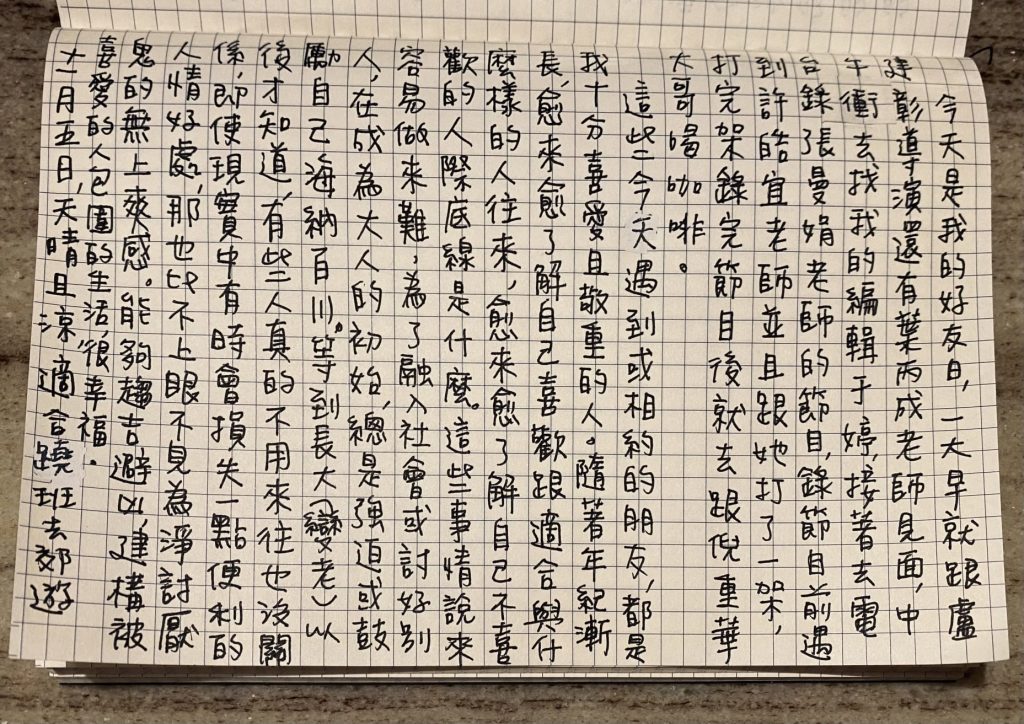 今天是我的好友日,一大早就跟盧
建彰導演還有葉丙成老師見面,中
午衝去找我的編輯于婷,接著去電
台錄張曼娟老師的節目,錄節目前遇
到許皓宜老師並且跟她打了一架,
打完架錄完節目後就去跟倪重華
大哥喝咖啡。
這些今天遇到或相約的朋友,都是
我十分喜愛且敬重的人。隨著年紀漸
長,愈來愈了解自己喜歡跟適合與什
麼樣的人往來,愈來愈了解自己不喜
歡的人際底線是什麼。這些事情說來
容易做來難,為了融入社會或討好別
人,在成為大人的初始,總是強迫或鼓
勵自己海納百川。等到長大(變老)以
後才知道,有些人真的不用來往也沒關
係,即使現實中有時會損失一點便利的
人情好處,那也比不上眼不見為淨討厭
鬼的無上爽感。能夠趨吉避凶,建構被
喜愛的人包圍的生活,很幸福。
十一月五日,天晴且涼,適合蹺班去郊遊